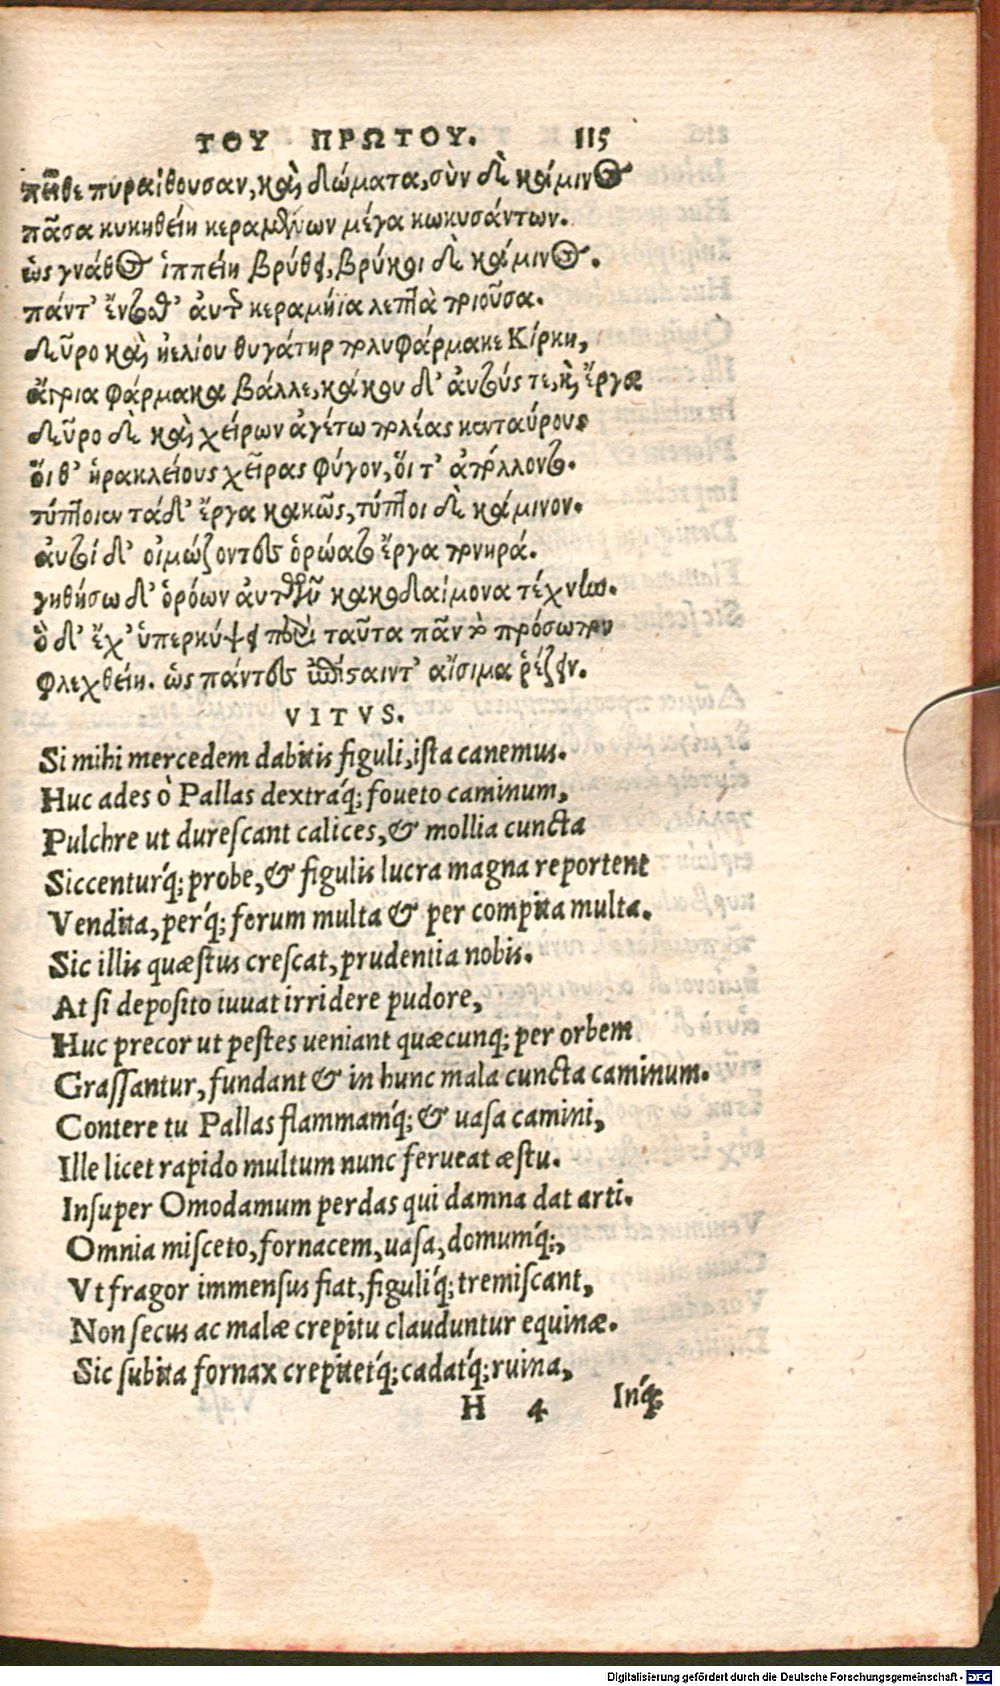 ΤΟΥ ΠΡΩΤΟΥ. 115
πεῖθε πυραίθουσαν, καὶ δώματα, σὺν δὲ κάμινος
πᾶσα κυκηθείη κεραμέων μέγα κωκυσάντων.
ὡς γνάθος ἱππείη βρύκει, βρύκοι δὲ κάμινος.
πάντ' ἔντοσθ' αὐτῆς κεραμήϊα λεπτὰ ποιοῦσα.
δεῦρο καὶ ἠελίου θυγάτηρ πολυφάρμακε Κίρκη,
ἄγρια φάρμακα βάλλε, κάκου δ' αὐτούς τε, καὶ ἔργα
δεῦρο δὲ καὶ χείρων ἀγέτω πολέας κενταύρους
οἵ θ' ἡρακλείους χεῖρας φύγον, οἵ τ' ἀπόλλοντο.
τύπτοιεν τάδ' ἔργα κακῶς, τύπτοι δὲ κάμινον.
αὐτοὶ δ' οἰμώζοντες ὁρώατο ἔργα πονηρά.
γηθήσω δ' ὁρόων αὐτῶν κακοδαίμονα τέχνην.
ὃ δ' ἔχ' ὑπερκύψει περὶ ταῦτα πᾶν τὸ πρόσωπον
φλεχθείη. ὡς πάντες ἐπίσαιντ' αἴσιμα ῥέζειν.
VITVS.
Si mihi mercedem dabitis figuli, ista canemus.
Huc ades ò Pallas dextráq; foueto caminum,
Pulchre ut durescant calices, & mollia cuncta
Siccenturq́; probe, & figulis lucra magna reportent
Vendita, perq́; forum multa & per compita multa.
Sic illis quæstus crescat, prudentia nobis.
At si deposito iuuat irridere pudore,
Huc precor ut pestes ueniant quæcunq; per orbem
Grassantur, fundant & in hunc mala cuncta caminum.
Contere tu Pallas flammamq́; & uasa camini,
Ille licet rapido multum nunc ferueat æstu.
Insuper Omodamum perdas qui damna dat arti.
Omnia misceto, fornacem, uasa, domumq́;,
Vt fragor immensus fiat, figuliq́; tremiscant,
Non secus ac malæ crepitu clauduntur equinæ.
Sic subita fornax crepitetq́; cadatq́; ruina,
H 4 Inq́;
Digitalisierung gefördert durch die Deutsche Forschungsgemeinschaft - DFG